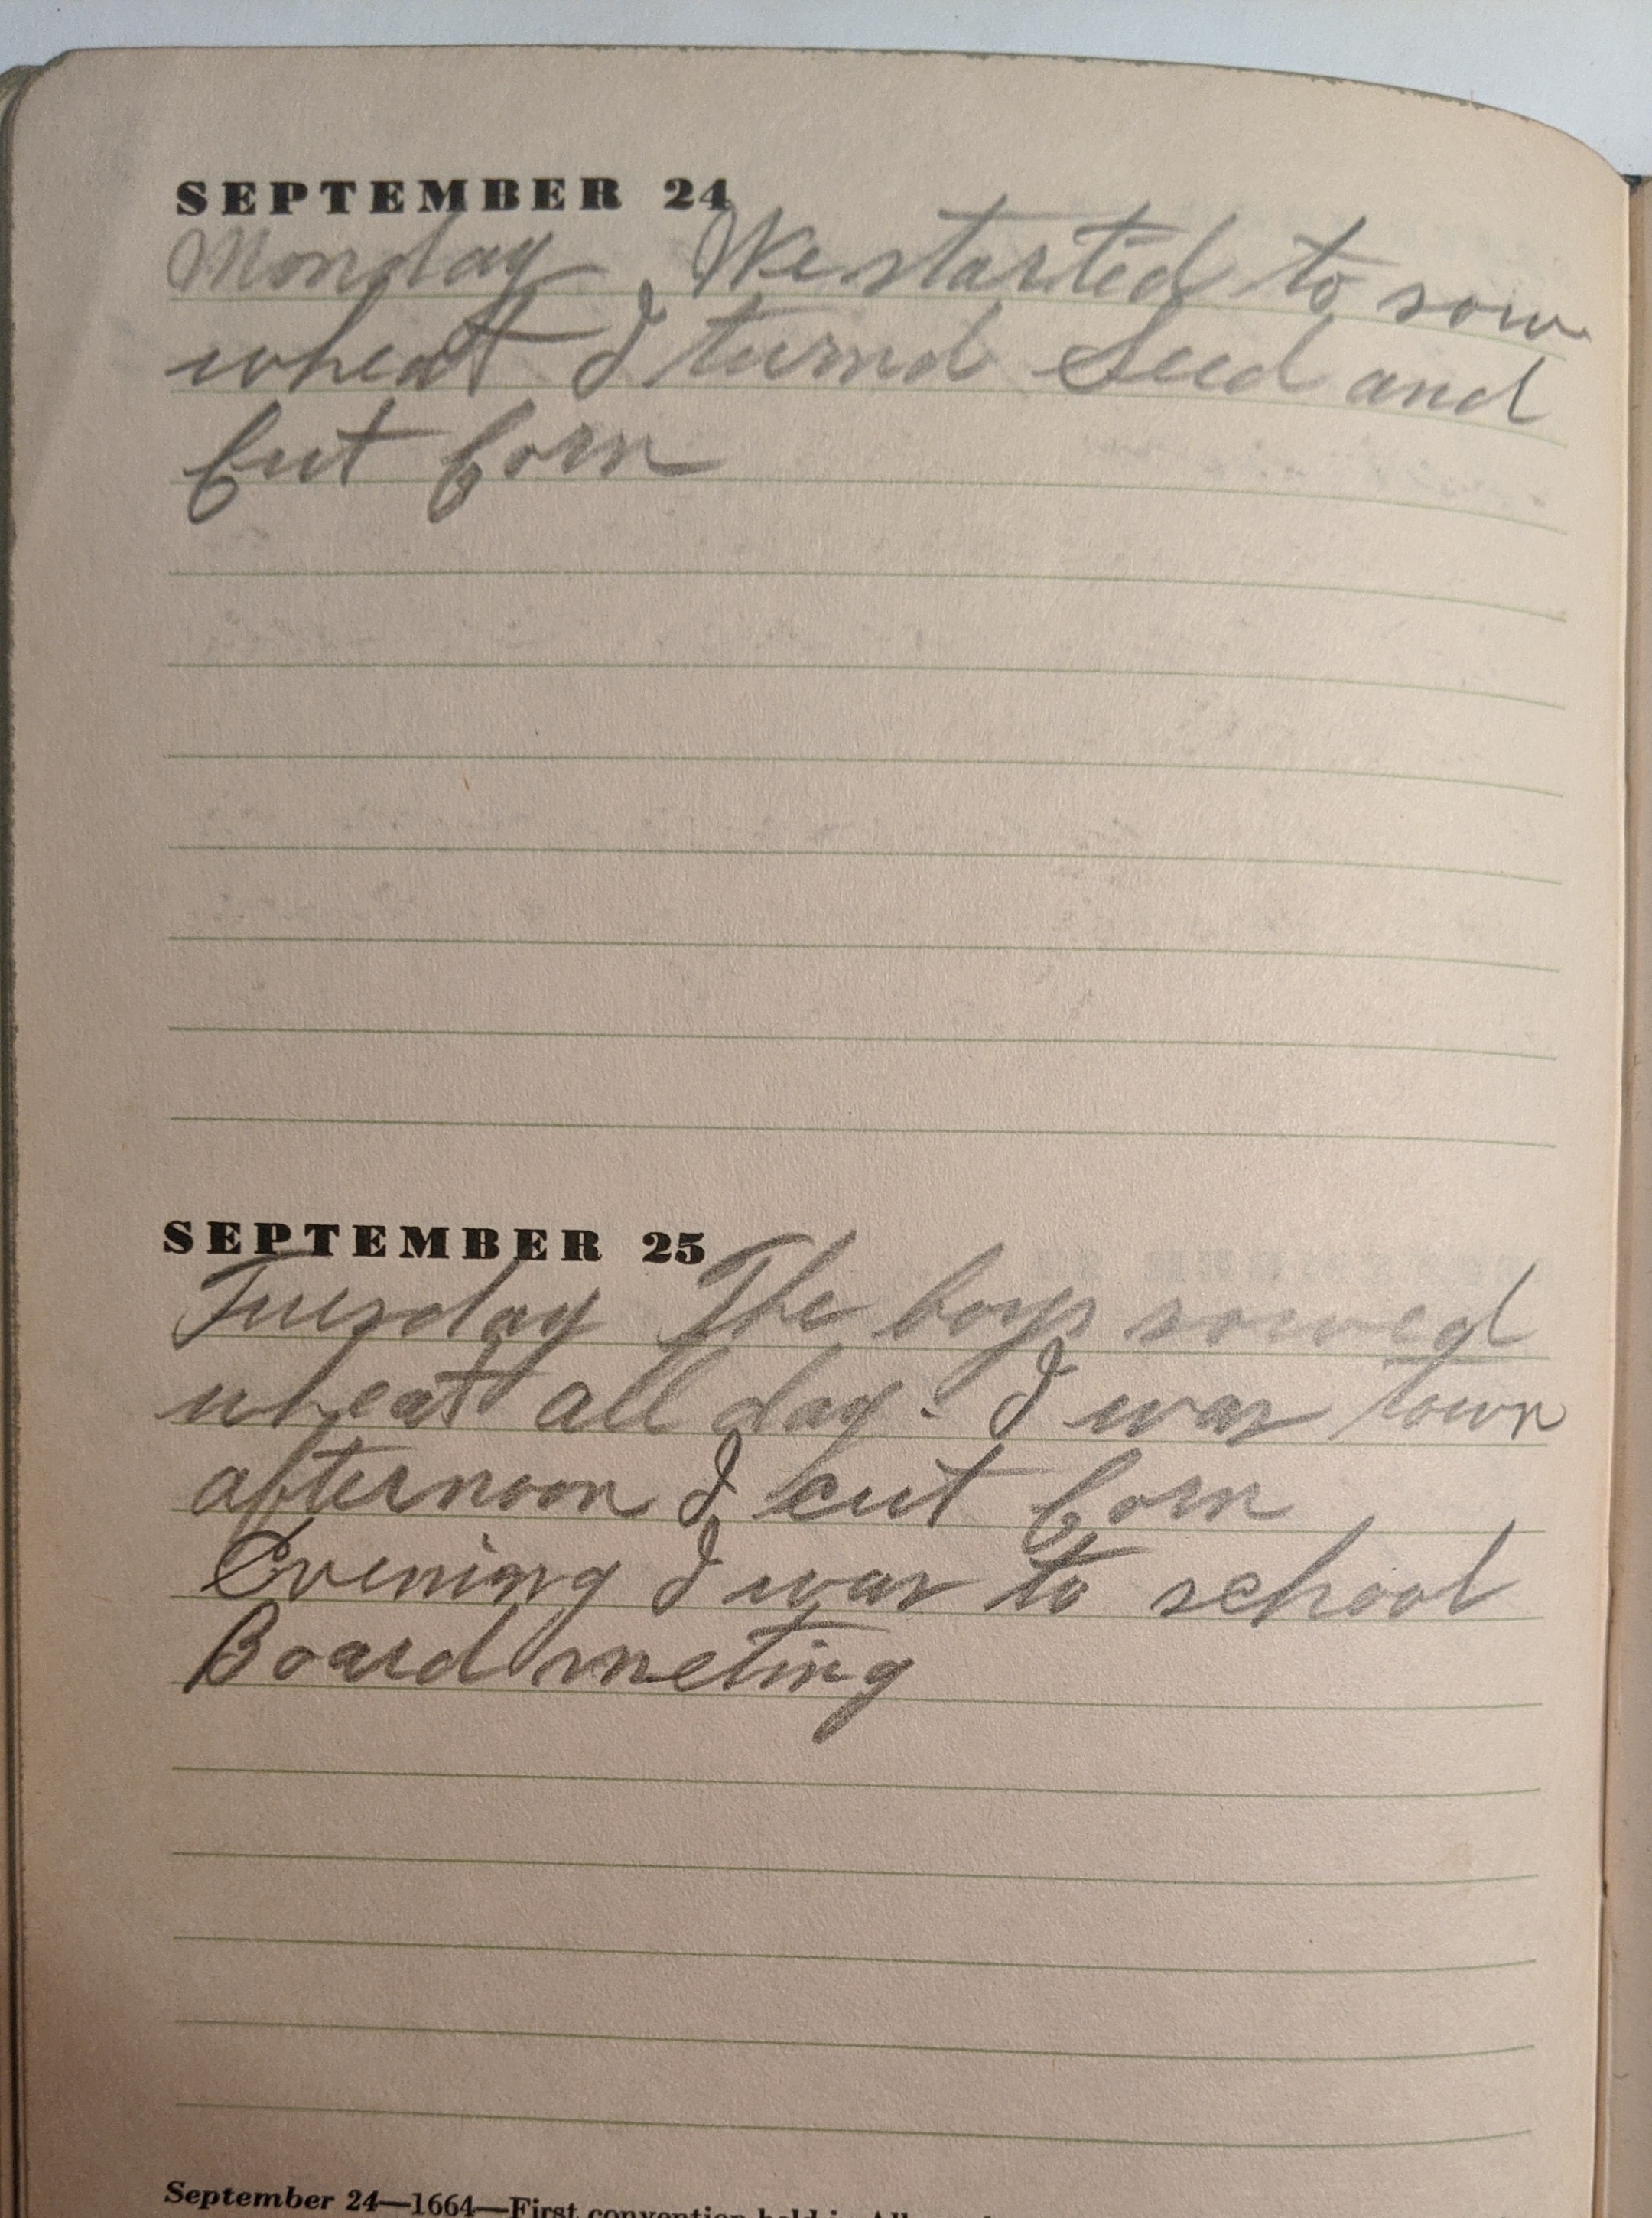 SEPTEMBER 24
Monday We started to sow
wheat I turnd Seed and
Cut Corn
SEPTEMBER 25
Tuesday The boys sowed
wheat all day. I was town
afternoon I cut Corn
Evening I was to school
Board meting
September 24—1664—First convention held in